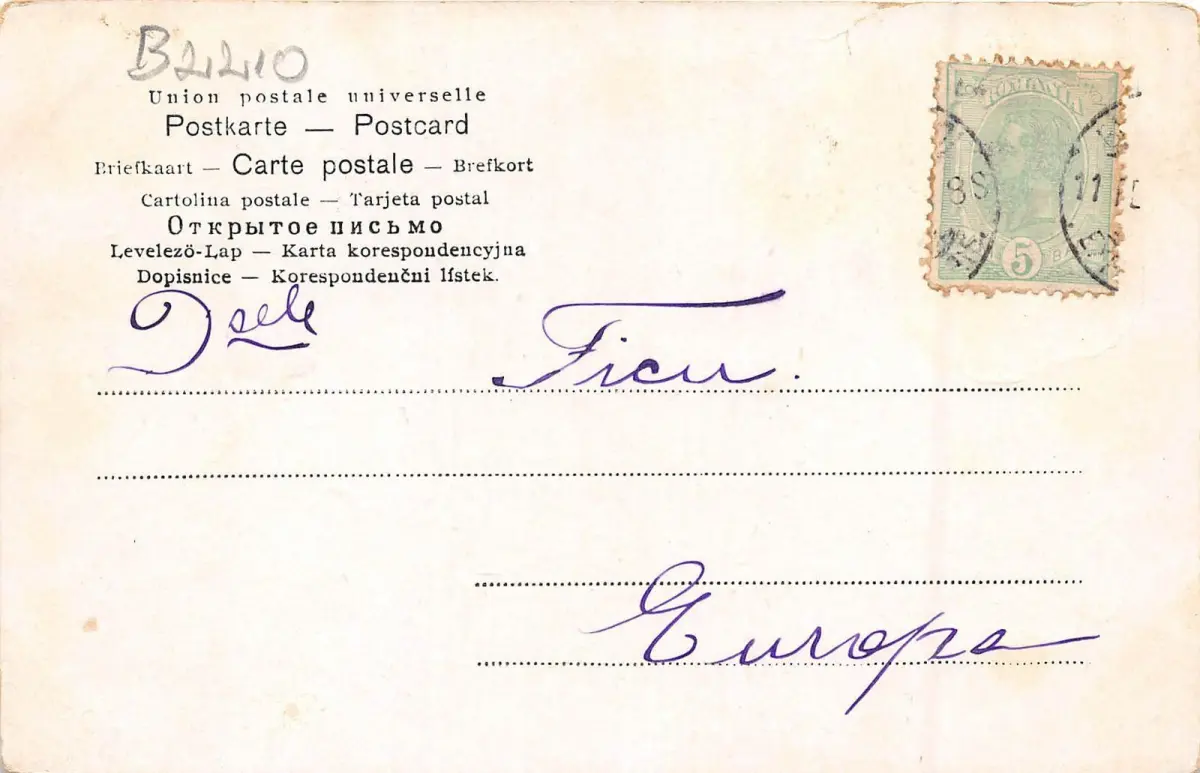 B2210
Union postale universelle
Postkarte — Postcard
Briefkaart — Carte postale — Brefkort
Cartolina postale — Tarjeta postal
Открытое письмо
Levelező-Lap — Karta korespondencyjna
Dopisnice — Korespondenčni lístek.
ROMANIA
88 11
5 B
Dsele Ficu.
Europa